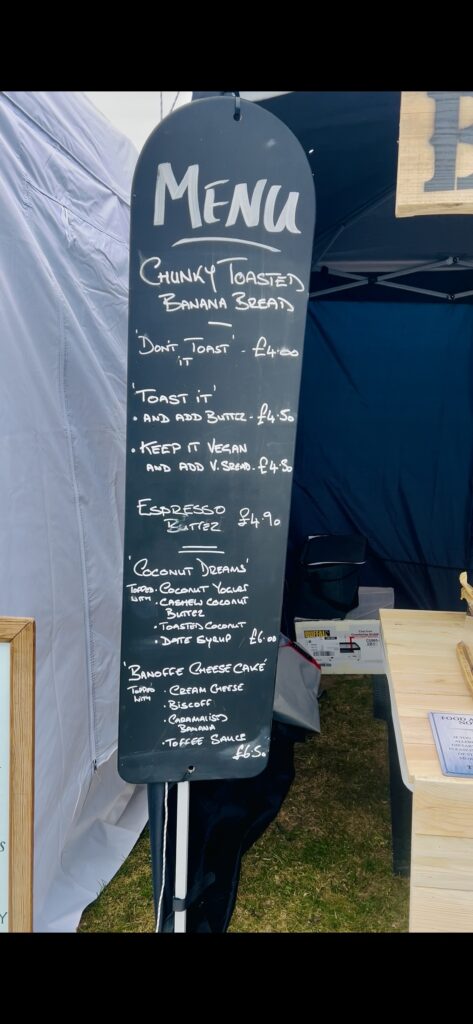 MENU
CHUNKY TOASTED
BANANA BREAD
'DON'T TOAST' - £4.00
IT
'TOAST IT'
• AND ADD BUTTER - £4.50
• KEEP IT VEGAN
AND ADD V. SPREAD - £4.50
ESPRESSO
BUTTER £4.90
'COCONUT DREAMS'
TOPPED WITH • COCONUT YOGURT
• CASHEW COCONUT
BUTTER
• TOASTED COCONUT
• DATE SYRUP £6.00
'BANOFFE CHEESECAKE'
TOPPED WITH • CREAM CHEESE
• BISCOFF
• CARAMALISED
BANANA
• TOFFEE SAUCE
£6.50
BUFFALO
FOOD